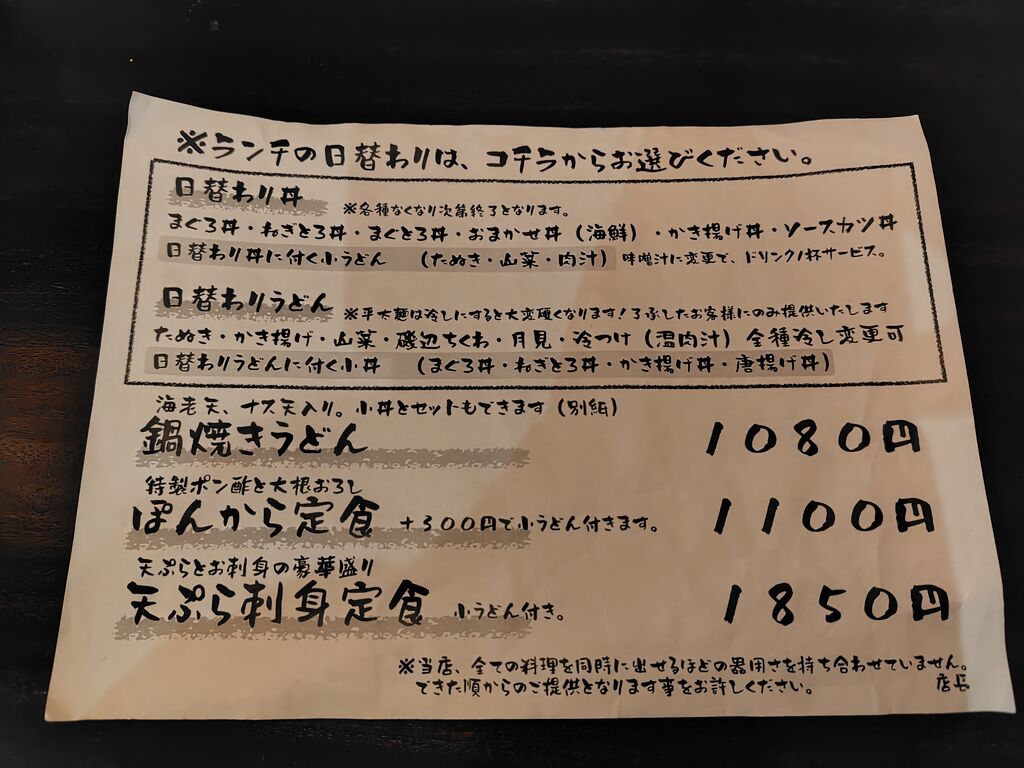 ※ランチの日替わりは、コチラからお選びください。
日替わり丼 ※各種なくなり次第終了となります。
まぐろ丼・ねぎとろ丼・まぐとろ丼・おまかせ丼（海鮮）・かき揚げ丼・ソースカツ丼
日替わり丼に付く小うどん （たぬき・山菜・肉汁） 味噌汁に変更で、ドリンク1杯サービス。
日替わりうどん ※平太麺は冷しにすると大変硬くなります！ろぶしたお客様にのみ提供いたします
たぬき・かき揚げ・山菜・磯辺ちくわ・月見・冷つけ（温肉汁） 全種冷し変更可
日替わりうどんに付く小丼 （まぐろ丼・ねぎとろ丼・かき揚げ丼・唐揚げ丼）
海老天、ナス天入り。小丼とセットもできます（別紙）
鍋焼きうどん 1080円
特製ポン酢と大根おろし
ぽんから定食 +300円で小うどん付きます。 1100円
天ぷらとお刺身の豪華盛り
天ぷら刺身定食 小うどん付き。 1850円
※当店、全ての料理を同時に出せるほどの器用さを持ち合わせていません。
できた順からのご提供となります事をお許しください。 店長